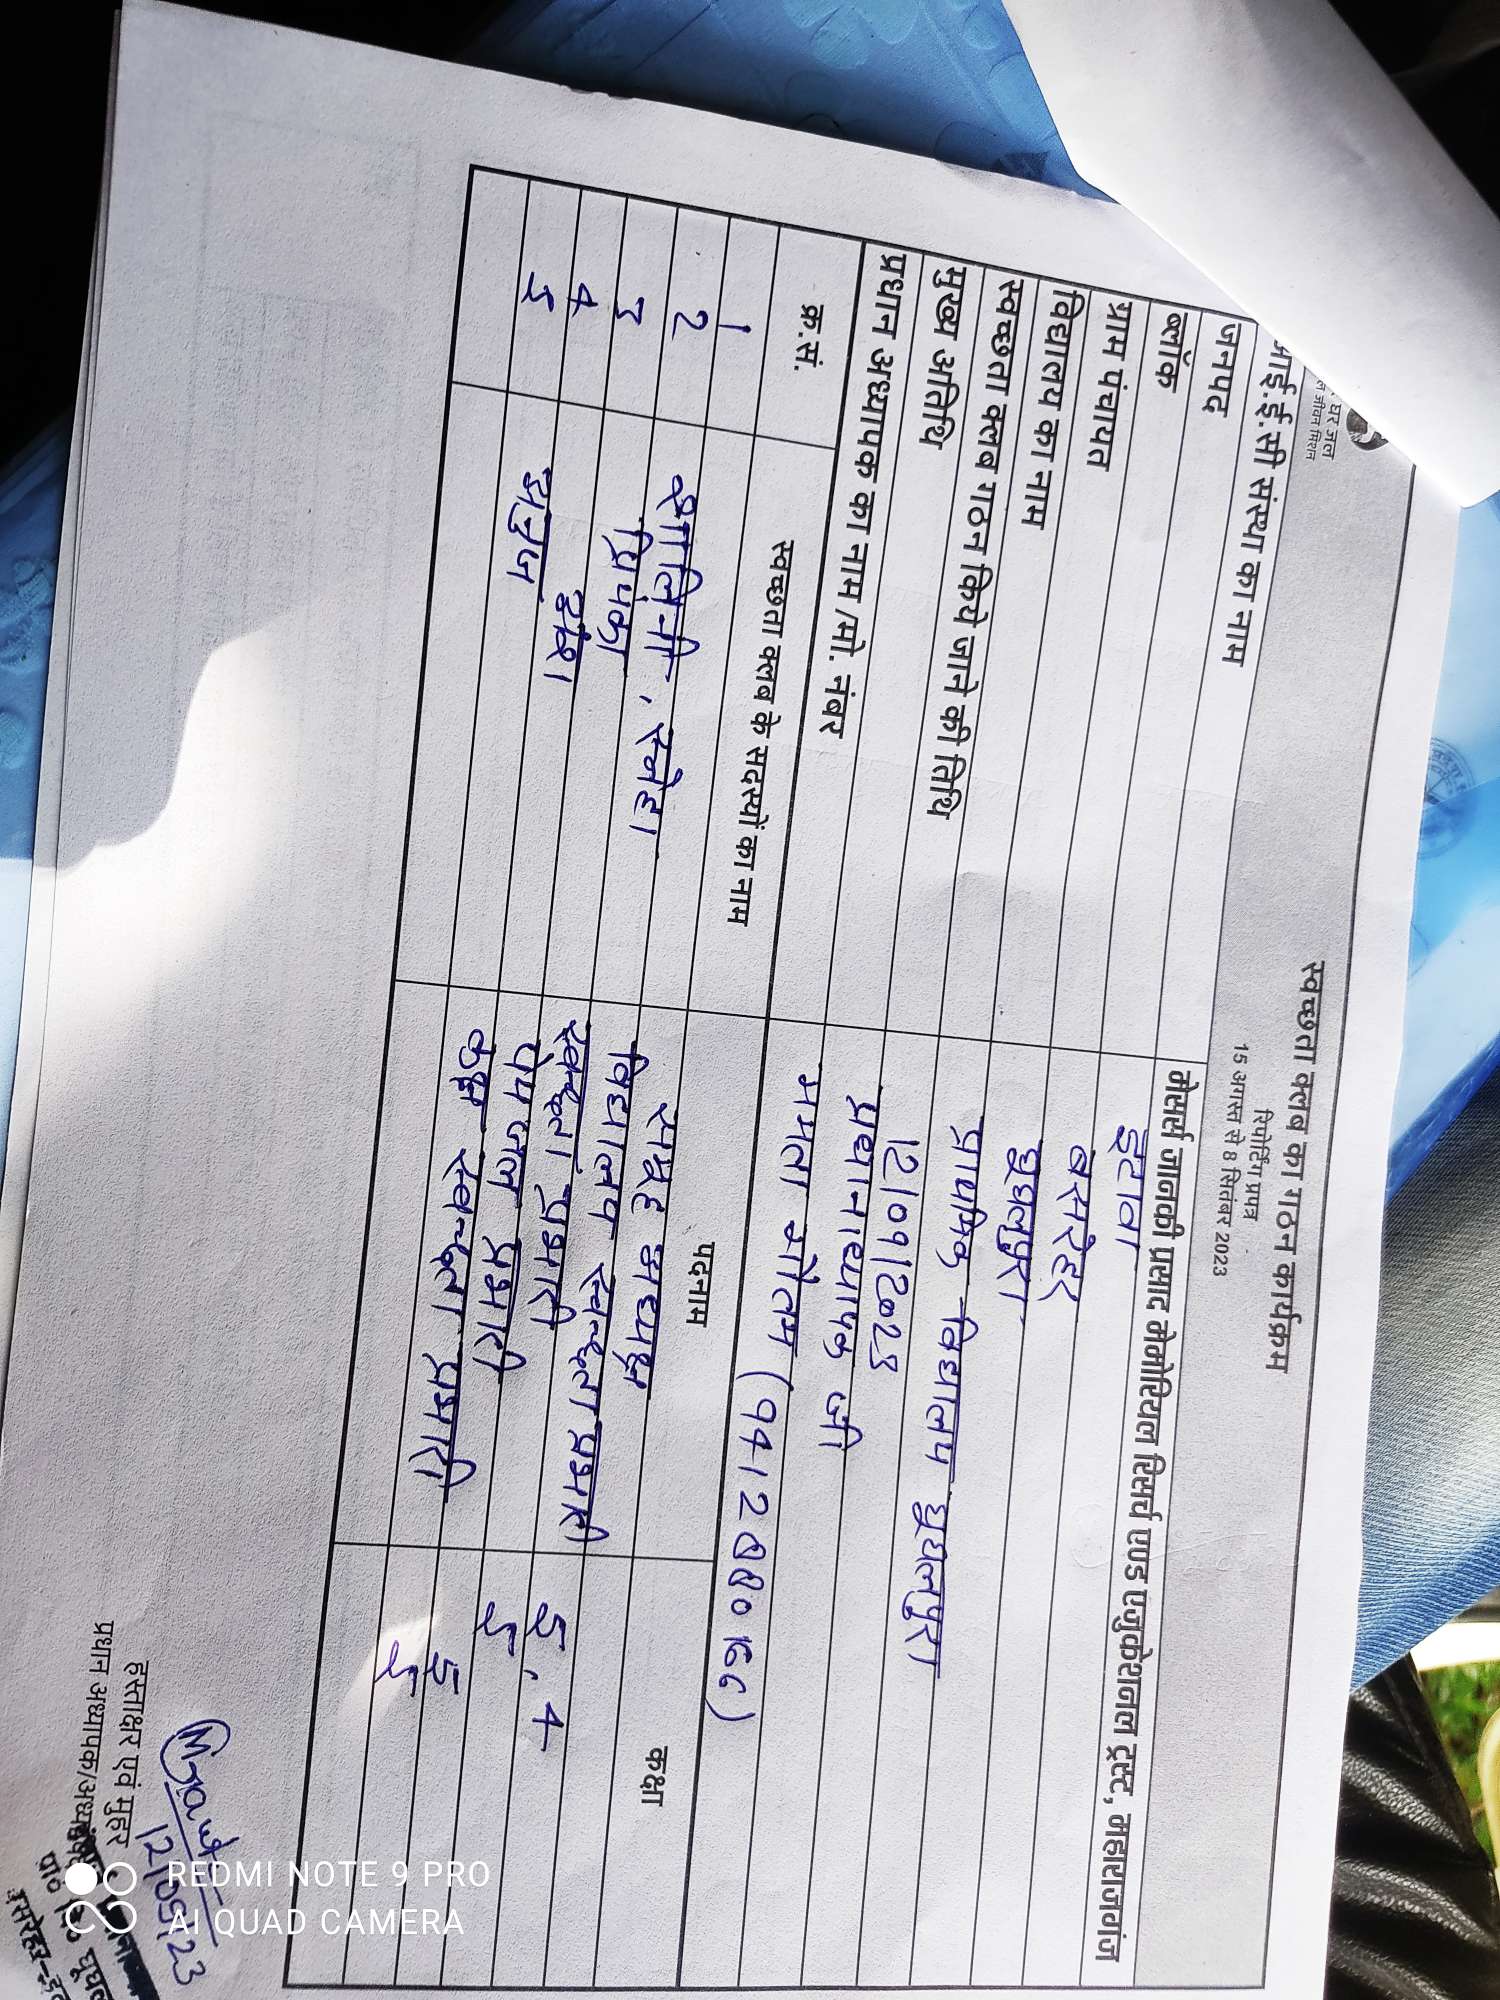 घर जल
जल जीवन मिशन
स्वच्छता क्लब का गठन कार्यक्रम
रिपोर्टिंग प्रपत्र
15 अगस्त से 8 सितंबर 2023
आई.ई.सी संस्था का नाम मेसर्स जानकी प्रसाद मेमोरियल रिसर्च एण्ड एजुकेशनल ट्रस्ट, महाराजगंज
जनपद इटावा
ब्लॉक बसरेहर
ग्राम पंचायत घुघलपुरा
विद्यालय का नाम प्राथमिक विद्यालय घुघलपुरा
स्वच्छता क्लब गठन किये जाने की तिथि 12/09/2023
मुख्य अतिथि प्रधानाध्यापक जी
प्रधान अध्यापक का नाम /मो. नंबर ममता गौतम (9412880166)
क्र.सं. स्वच्छता क्लब के सदस्यों का नाम पदनाम कक्षा
1 समूह अध्यक्ष
2 शालिनी, स्नेहा विद्यालय स्वच्छता प्रभारी 5, 4
3 प्रियंका स्वच्छता प्रभारी 5
4 पेयजल प्रभारी 5
5 अनुज कक्ष स्वच्छता प्रभारी 5
12/09/23
हस्ताक्षर एवं मुहर
प्रधान अध्यापक/अध्यक्ष
REDMI NOTE 9 PRO
AI QUAD CAMERA